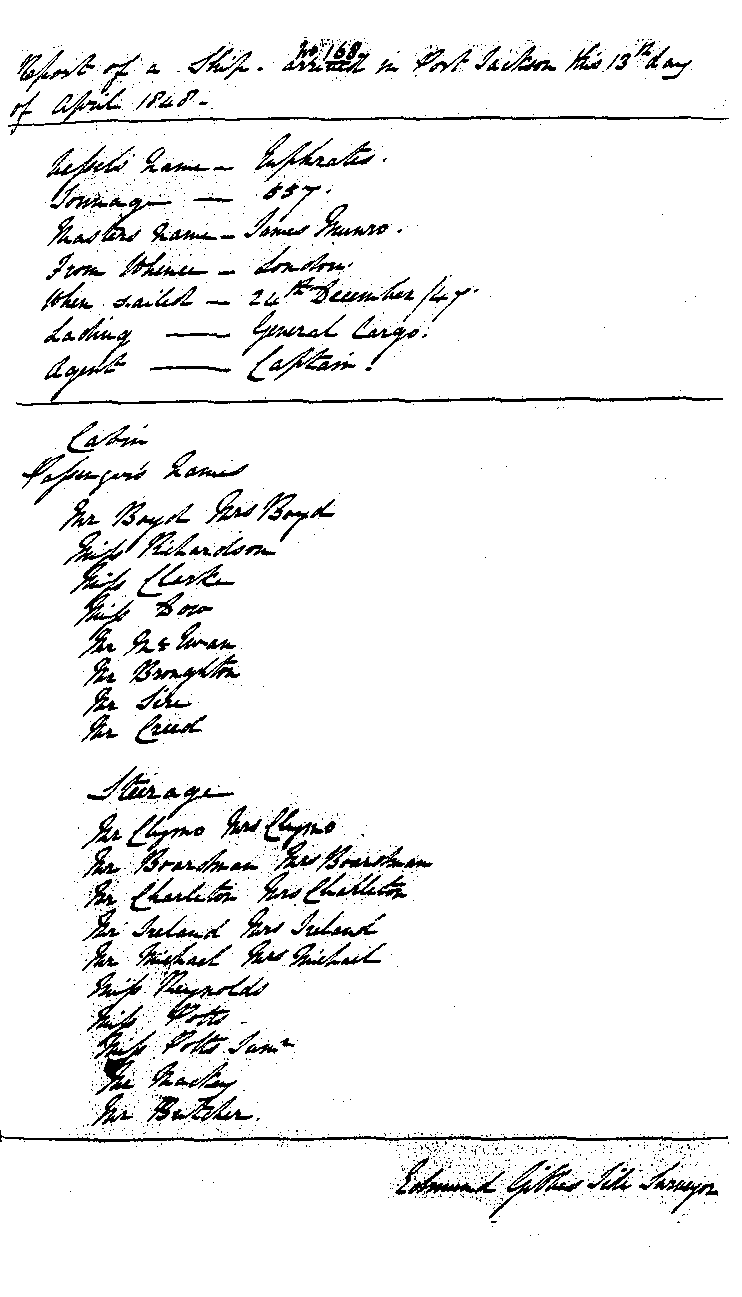 No 168
Report of a Ship. arrived in Port Jackson this 13th day
of April 1848 -
Vessels Name - Euphrates.
Tonnage - 557.
Masters Name - James Munro.
From Whence - London.
When sailed - 24th December /47.
Lading - General Cargo.
Agent - Captain.
Cabin
Passengers Names
Mr Boyd Mrs Boyd
Miss Richardson
Miss Clarke
Miss Dow
Mr McEwan
Mr Broughton
Mr Sire
Mr Creed
Steerage
Mr Clymo Mrs Clymo
Mr Boardman Mrs Boardman
Mr Charleton Mrs Charleton
Mr Ireland Mrs Ireland
Mr Michael Mrs Michael
Miss Reynolds
Miss Potts
Miss Potts Junr
Mr Mackey
Mr Butcher.
Edmund Tide Surveyor